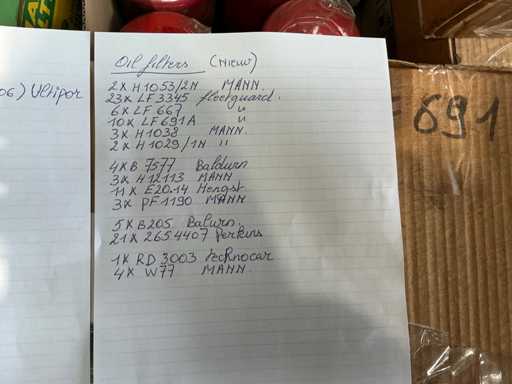 Oil filters (Nieuw)
2x H1053/2N MANN.
23x LF3345 fleetguard.
6x LF 667 "
10x LF691A "
3x H1038 MANN.
2x H1029/1N "
4xB 7577 Balduin
3x H12113 MANN
11x E20.14 Hengst
3x PF1190 MANN
5xB205 Balwin.
21x 2654407 Perkins
1x RD 3003 technocar
4x W77 MANN.
06) Ultipor
691